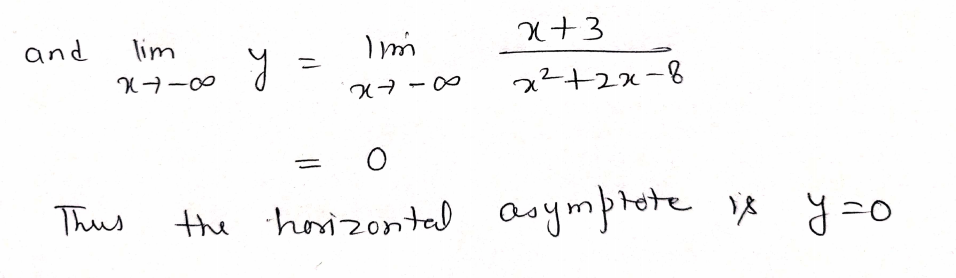 and lim x→-∞ y = lim x→-∞ x+3 / x²+2x-8
= 0
Thus the horizontal asymptote is y=0